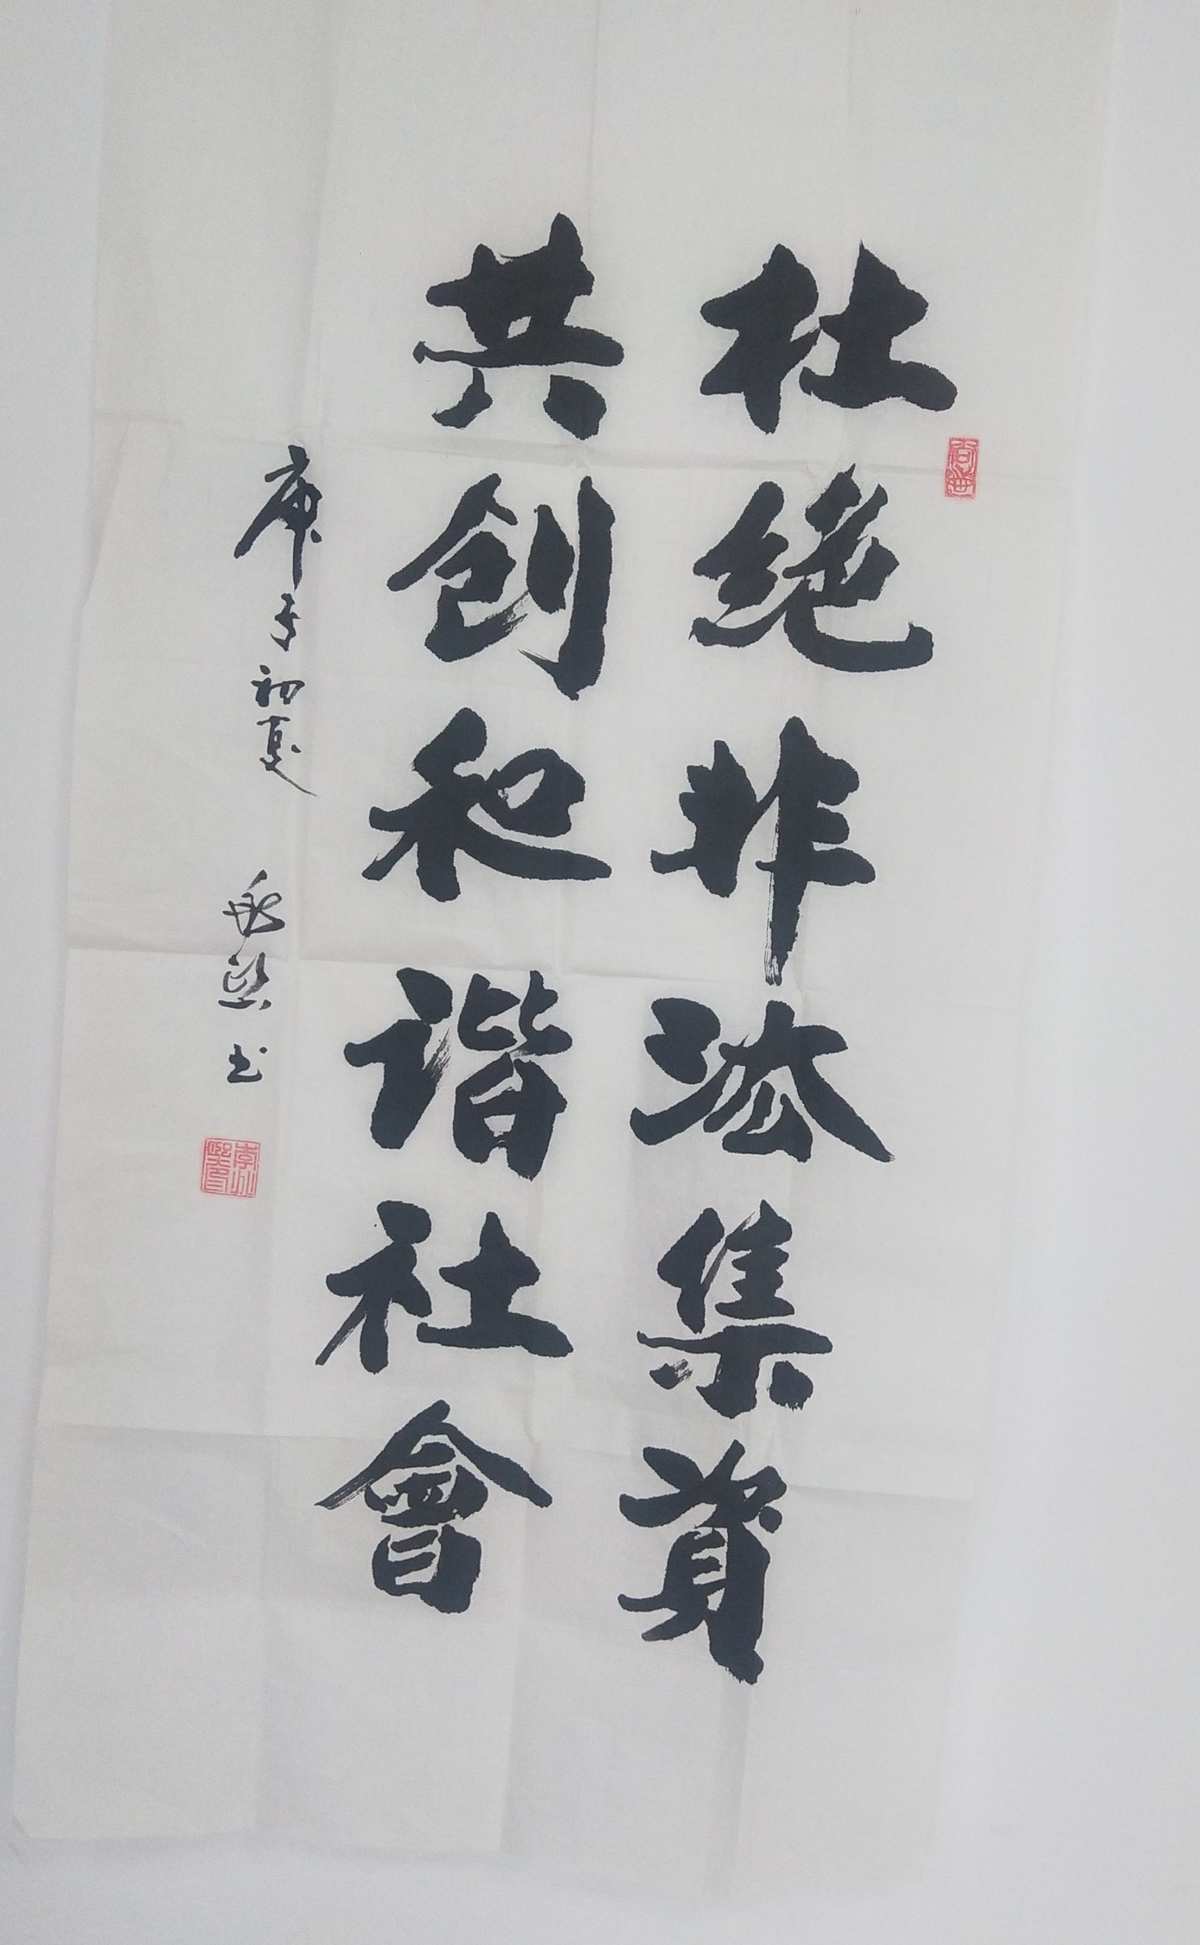 杜绝非法集资
共创和谐社會
庚子初夏
书